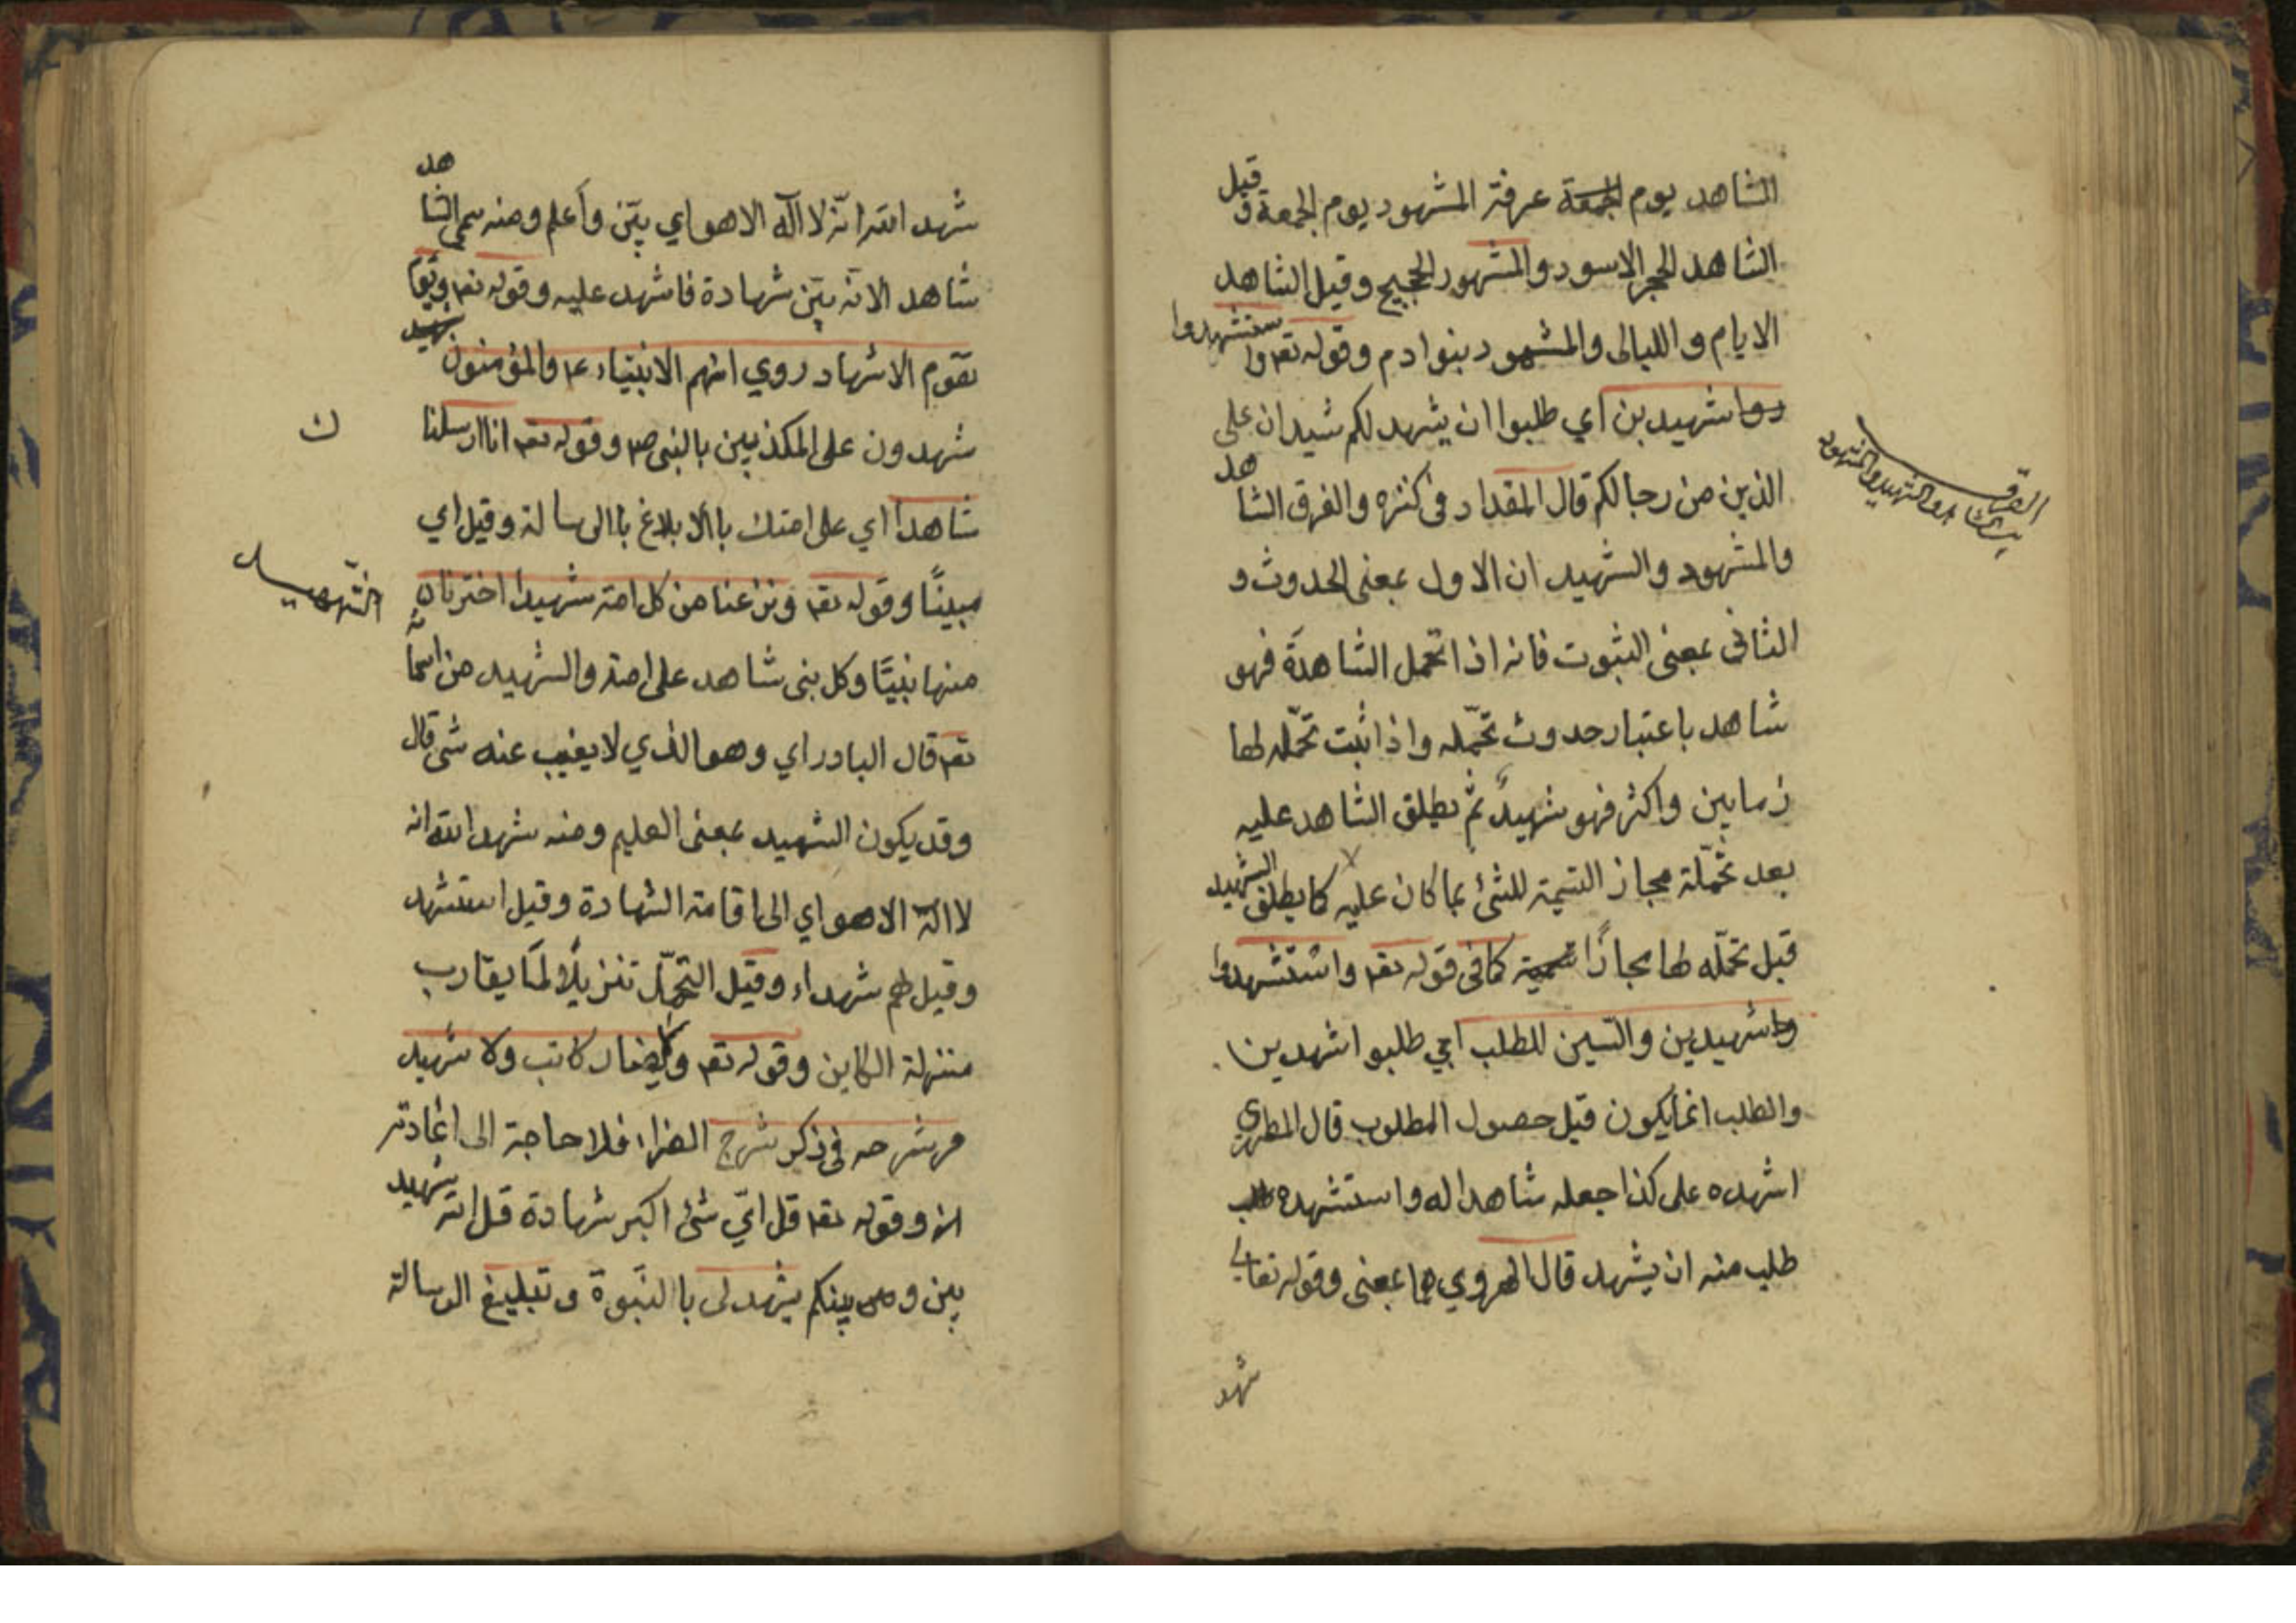 الشاهد يوم الجمعة عرفة المشهود يوم الجمعة وقيل
الشاهد الحجر الاسود والمشهود الحجيج وقيل الشاهد
الايام والليالى والمشهود بنوادم وقوله تعم واستشهدوا
شهيدين اي طلبوا ان يشهد لكم شيدان على
الذين من رجالكم قال المقداد فى كنزه والفرق الشاهد
والمشهود والشهيد ان الاول بمعنى الحدوث و
الثانى بمعنى الثبوت فانه اذا تحمل الشاهدة فهو
شاهد باعتبار حدوث تحمّله واذا ثبت تحمّله لها
زمانين واكثر فهو شهيدٌ ثم يطلق الشاهد عليه
بعد تحمّلة مجاز التسمية للشئ بما كان عليه كما يطلق الشهيد
قبل تحمّله لها مجازًا تسمية كما فى قوله تعم واستشهدوا
شهيدين والسين للطلب اي طلبوا شهدين
والطلب انما يكون قبل حصول المطلوب قال المطرزي
اشهده على كذا جعله شاهدا له واستشهده
طلب منه ان يشهد قال الهروي هما بمعنى وقوله تعالى
شهد
الفرق
بين الشاهد والشهيد والمشهود
شهد الله انّه لا اله الا هو اي بيّن وأعلم ومنه سمى الشاهد
شاهد الانه بيّن شهادة فاشهد عليه وقوله تعم ويوم
يقوم الاشهاد روي انهم الانبياء ع والمؤمنون
شهدون على المكذبين بالنبى ص وقوله تعم انا ارسلنا
شاهدا اي على امتك باالابلاغ باالرسالة وقيل اي
مبينًا وقوله تعم ونزعنا من كل امة شهيدا اخترنا
منها نبيًا وكل بنى شاهد على امته والشهيد من اسمائه
تعم قال البادراي وهو الذي لا يغيب عنه شى قال
وقد يكون الشهيد بمعنى العليم ومنه شهد الله انه
لا اله الا هو اي الى اقامة الشهادة وقيل استشهد
وقيل لهم شهداء وقيل التحمّل تنزيلًا لما يقارب
منزلة الكاين وقوله تعم ولا يضار كاتب ولا شهيد
مر شرحه فى ذكر شرح الضراء فلا حاجة الى اعادته
الان وقوله تعم قل ايّ شئ اكبر شهادة قل الله شهيد
بين وبينكم يشهد لى باالنبوة وتبليغ الرسالة
ك
الشّهيد